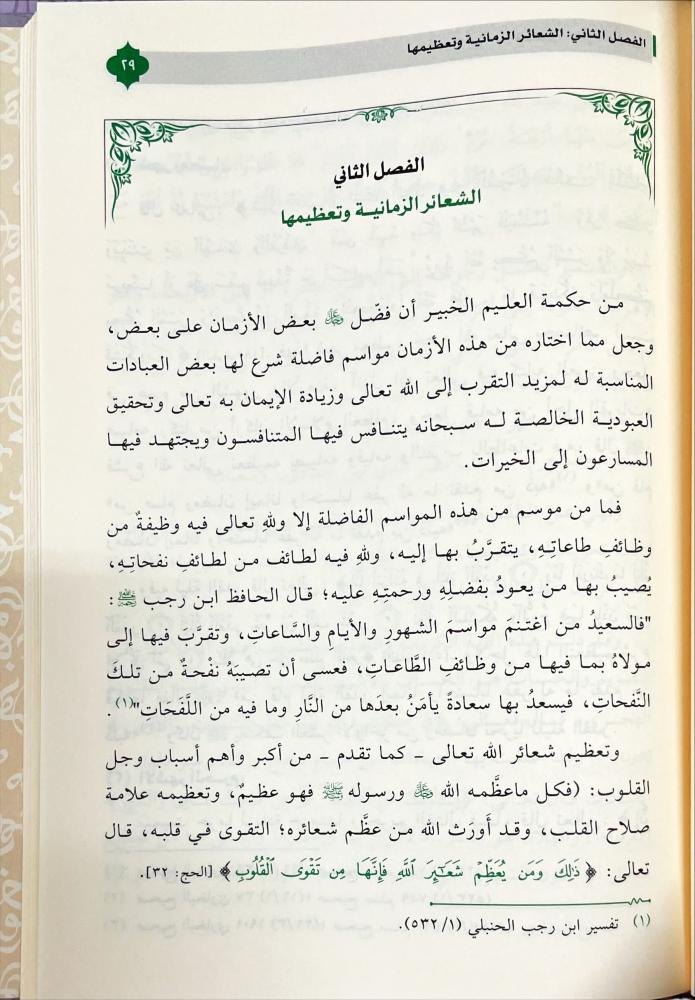 الفصل الثاني: الشعائر الزمانية وتعظيمها
٢٩
الفصل الثاني
الشعائر الزمانية وتعظيمها
من حكمة العليم الخبير أن فضّل ﷻ بعض الأزمان على بعض،
وجعل مما اختاره من هذه الأزمان مواسم فاضلة شرع لها بعض العبادات
المناسبة له لمزيد التقرب إلى الله تعالى وزيادة الإيمان به تعالى وتحقيق
العبودية الخالصة له سبحانه يتنافس فيها المتنافسون ويجتهد فيها
المسارعون إلى الخيرات.
فما من موسم من هذه المواسم الفاضلة إلا وللهِ تعالى فيه وظيفةٌ من
وظائفِ طاعاتِهِ، يتقرَّبُ بها إليه، وللهِ فيه لطائف من لطائفِ نفحاتِهِ،
يُصيبُ بها من يعودُ بفضلِهِ ورحمتِهِ عليه؛ قال الحافظ ابن رجب رحمه الله:
"فالسعيدُ من اغتنمَ مواسمَ الشهورِ والأيامِ والسَّاعاتِ، وتقرَّبَ فيها إلى
مولاهُ بما فيها من وظائفِ الطَّاعاتِ، فعسى أن تصيبَهُ نفْحةٌ من تلكَ
النَّفحاتِ، فيسعدُ بها سعادةً يأمَنُ بعدَها من النَّارِ وما فيه من اللَّفَحَاتِ"(١).
وتعظيم شعائر الله تعالى - كما تقدم - من أكبر وأهم أسباب وجل
القلوب: (فكل ماعظَّمه الله ﷻ ورسوله ﷺ فهو عظيمٌ، وتعظيمه علامة
صلاح القلب، وقد أَورَثَ الله من عظَّم شعائره؛ التقوى في قلبه، قال
تعالى: ﴿ذَٰلِكَ وَمَن يُعَظِّمْ شَعَٰٓئِرَ ٱللَّهِ فَإِنَّهَا مِن تَقْوَى ٱلْقُلُوبِ﴾ [الحج: ٣٢].
(١) تفسير ابن رجب الحنبلي (١/ ٥٣٢).